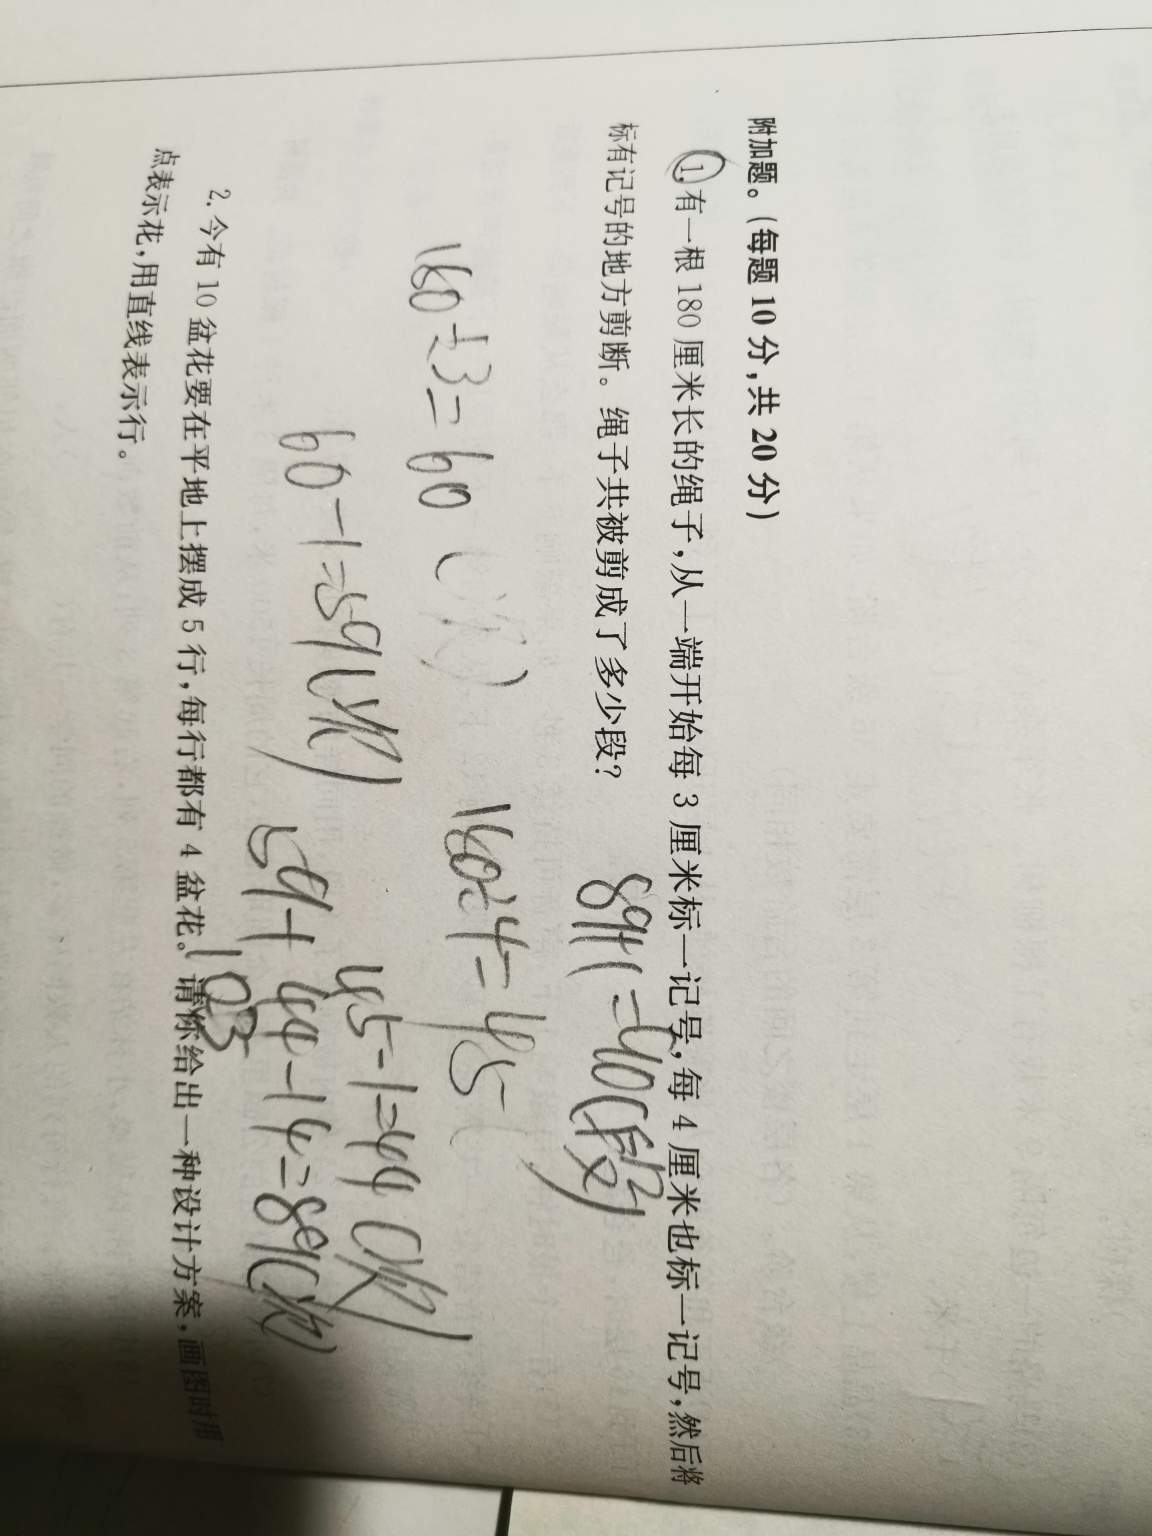 附加题。(每题 10 分,共 20 分)
1. 有一根 180 厘米长的绳子,从一端开始每 3 厘米标一记号,每 4 厘米也标一记号,然后将
标有记号的地方剪断。绳子共被剪成了多少段?
89+1=90(段)
180÷3=60(次)
180÷4=45
60-1=59(次)
45-1=44(次)
59+44-14=89(次)
103
2. 今有 10 盆花要在平地上摆成 5 行,每行都有 4 盆花。请你给出一种设计方案,画图时用
点表示花,用直线表示行。